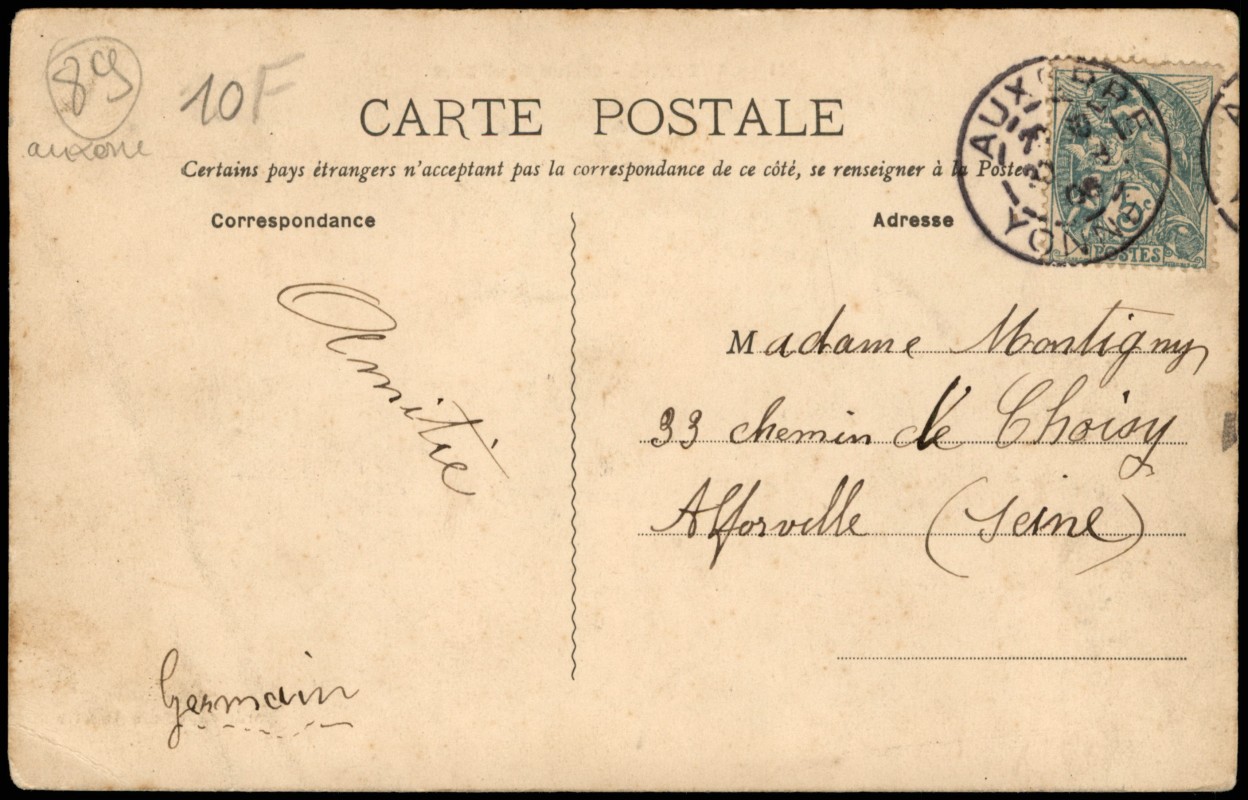 89
auxerre
10F
CARTE POSTALE
Certains pays étrangers n'acceptent pas la correspondance de ce côté, se renseigner à la Poste
Correspondance
Adresse
AUXERRE
YONNE
5c
POSTES
Amitié
Germain
Madame Montigny
33 chemin de Choisy
Alforville (Seine)